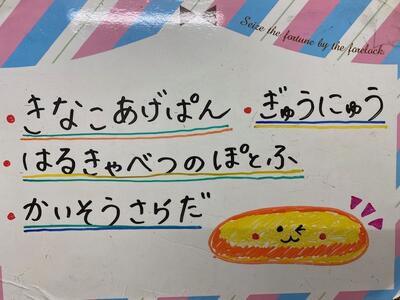 Seize the fortune by the forelock.
・きなこあげぱん ・ぎゅうにゅう
・はるきゃべつのぽとふ
・かいそうさらだ